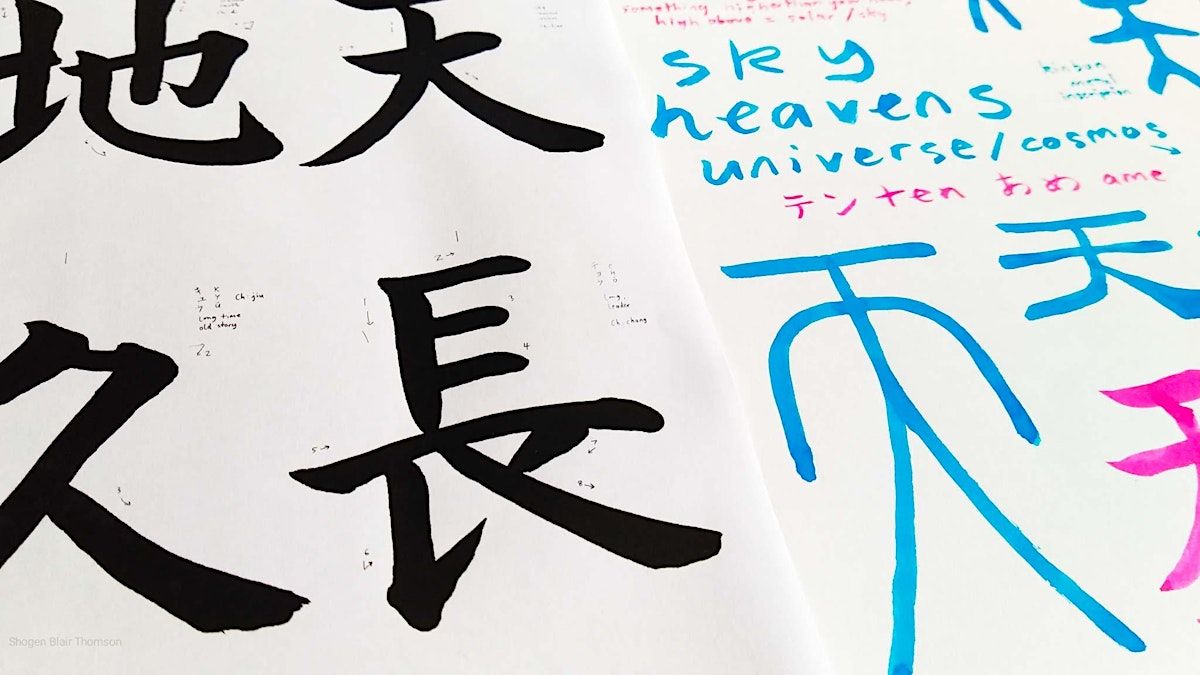 天長
地久
チョウ
CHO
Long,
leader
Ch: chang
キュウ
KYU
Ch: jiu
Long time
old story
high above = solar/sky
sky
heavens
universe/cosmos
テン ten あめ ame
kinbun
metal
inscription
天
天
Shogen Blair Thomson